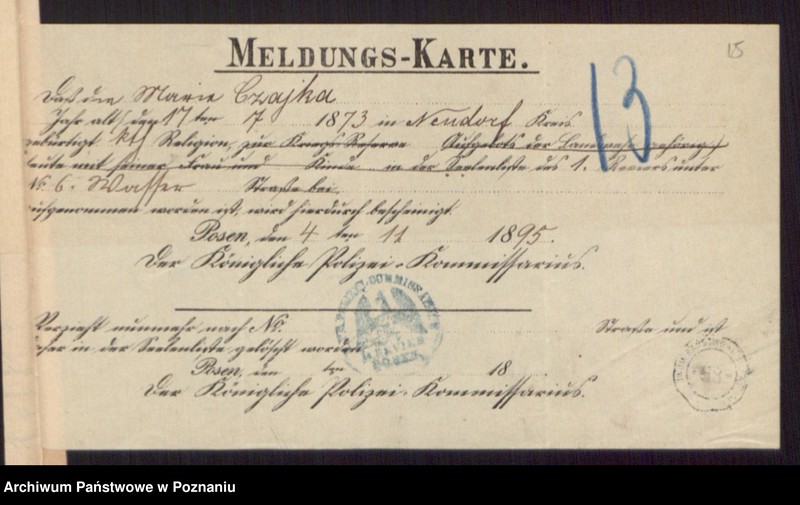 15
MELDUNGS-KARTE.
13
Daß die Marie Czajka
Jahr alt, den 17 ten 7 1873 in Neudorf Kreis
gebürtigt kth Religion, zur Kriegs-Reserve Aufgebots der Landwehr gehörig,
heute mit seiner Frau und Kinde in der Seelenliste des 1. Reviers unter
№ 6. Wasser Straße bei
aufgenommen worden ist, wird hierdurch bescheinigt.
Posen, den 4 ten 11 1895.
Der Königliche Polizei-Kommissarius.
Verzieht nunmehr nach №. Straße und ist
daher in der Seelenliste gelöscht worden
Posen, den ten 18
Der Königliche Polizei-Kommissarius.
Archiwum Państwowe w Poznaniu